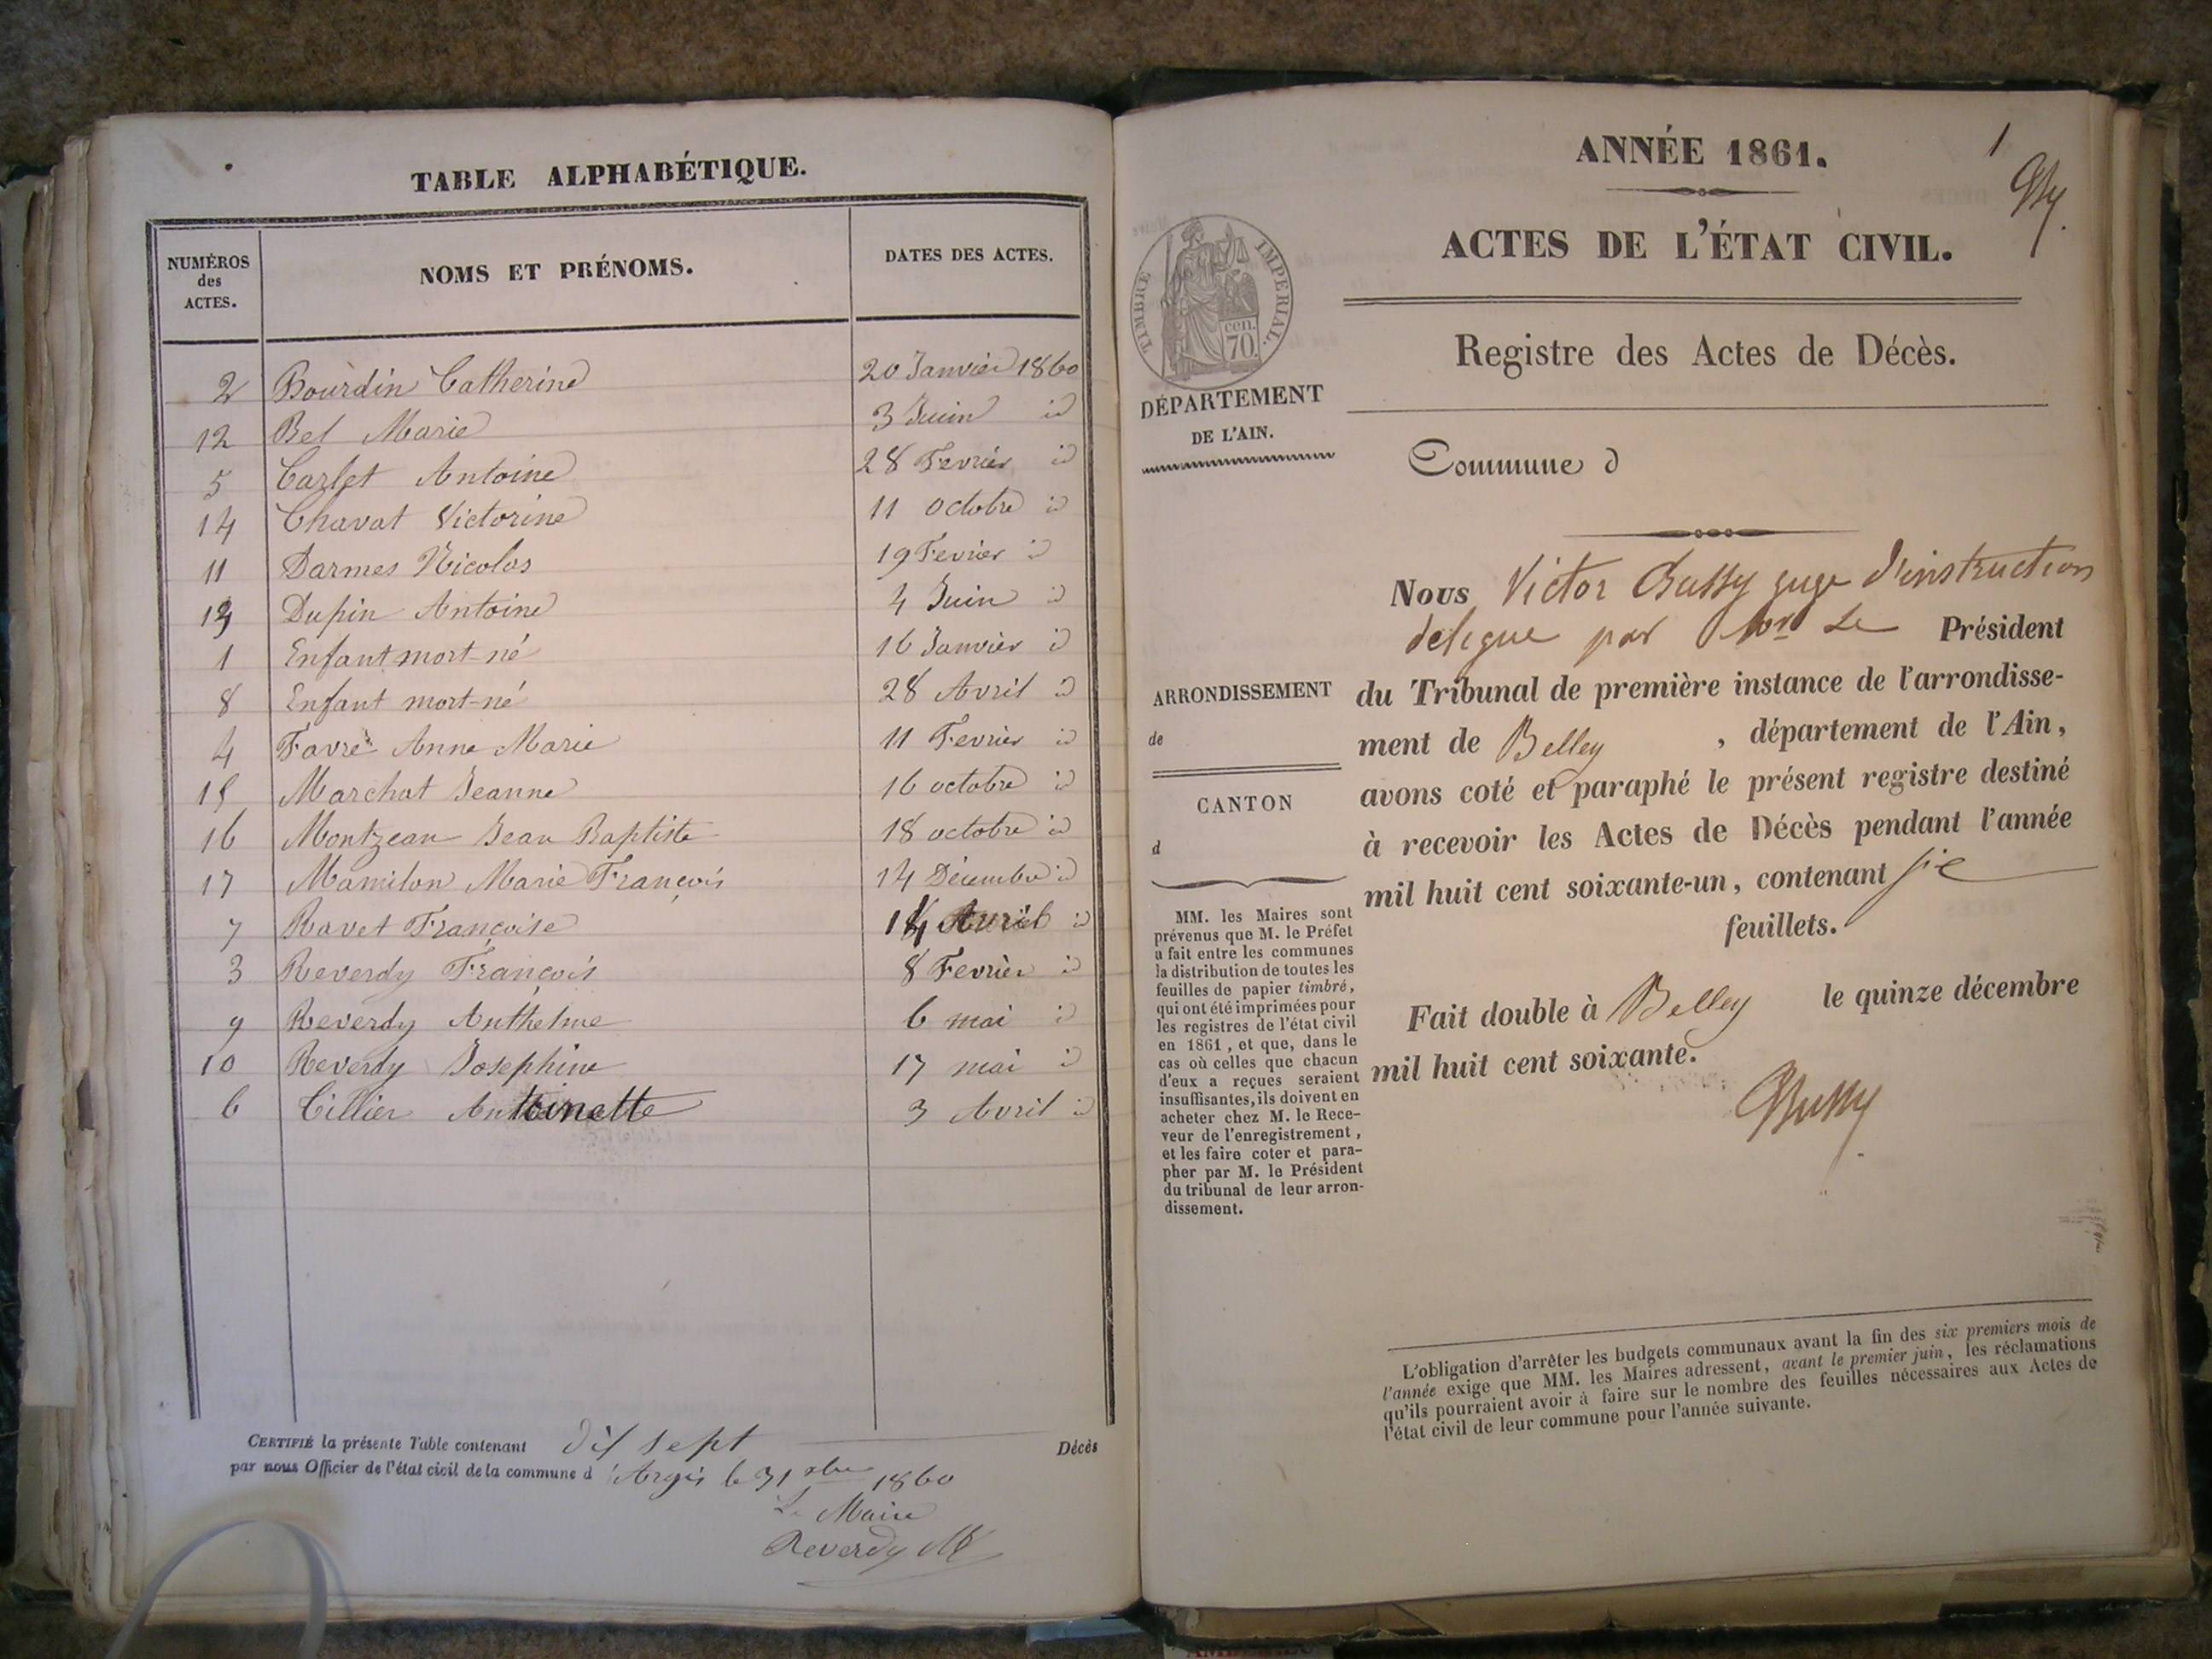 TABLE ALPHABÉTIQUE.
NUMÉROS des ACTES.
NOMS ET PRÉNOMS.
DATES DES ACTES.
2 Bourdin Catherine 20 Janvier 1860
12 Bel Marie 3 Juin id
5 Carlet Antoine 28 Fevrier id
14 Chavat Victorine 11 octobre id
11 Darmes Nicolas 19 Fevrier id
13 Dupin Antoine 4 Juin id
1 Enfant mort-né 16 Janvier id
8 Enfant mort-né 28 Avril id
4 Favre Anne Marie 11 Fevrier id
15 Marchat Jeanne 16 octobre id
16 Montzean Jean Baptiste 18 octobre id
17 Mamilon Marie François 14 Décembre id
7 Ravet Françoise 14 Avril id
3 Reverdy François 8 Fevrier id
9 Reverdy Anthelme 6 mai id
10 Reverdy Josephine 17 mai id
6 Tillier Antoinette 3 Avril id
CERTIFIÉ la présente Table contenant dix sept Décès
par nous Officier de l'état civil de la commune d'Argis le 31 xbre 1860
Le Maire
Reverdy
1
ANNÉE 1861.
ACTES DE L'ÉTAT CIVIL.
TIMBRE IMPERIAL.
70 cen.
Registre des Actes de Décès.
DÉPARTEMENT
DE L'AIN.
Commune d
Nous Victor Bussy juge d'instruction
delegue par Mr Le Président
du Tribunal de première instance de l'arrondisse-
ment de Belley, département de l'Ain,
avons coté et paraphé le présent registre destiné
à recevoir les Actes de Décès pendant l'année
mil huit cent soixante-un, contenant six
feuillets.
Fait double à Belley le quinze décembre
mil huit cent soixante.
Bussy
ARRONDISSEMENT
de
CANTON
d
MM. les Maires sont
prévenus que M. le Préfet
a fait entre les communes
la distribution de toutes les
feuilles de papier timbré,
qui ont été imprimées pour
les registres de l'état civil
en 1861, et que, dans le
cas où celles que chacun
d'eux a reçues seraient
insuffisantes, ils doivent en
acheter chez M. le Rece-
veur de l'enregistrement,
et les faire coter et para-
pher par M. le Président
du tribunal de leur arron-
dissement.
L'obligation d'arrêter les budgets communaux avant la fin des six premiers mois de
l'année exige que MM. les Maires adressent, avant le premier juin, les réclamations
qu'ils pourraient avoir à faire sur le nombre des feuilles nécessaires aux Actes de
l'état civil de leur commune pour l'année suivante.